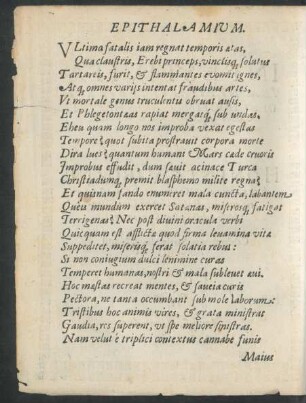 EPITHALAMIVM.
VLtima fatalis iam regnat temporis ætas,
Qua claustris, Erebi princeps, vinclisq́, solutus
Tartareis, furit, & flammantes evomit ignes,
Atq́, omnes varijs intentat fraudibus artes,
Vt mortale genus truculentis obruat ausis,
Et Phlegetontæas rapiat mergatq́, sub undas,
Eheu quam longo nos improba vexat egestas
Tempore? quot subita prostravit corpora morte
Dira lues? quantum humani Mars cæde cruoris
Improbus effudit, dum sævit acinace Turca
Christiadumq́, premit blasphemo milite regna?
Et quisnam fando enumeret mala cuncta, lubantem
Queis mundum exercet Satanas, miserosq́, fatigat
Terrigenas? Nec post divini oracula verbi
Quicquam est afflictæ quod firma levamina vitæ
Suppeditet, miserisq́, ferat solatia rebus:
Si non coniugium dulci lenimine curas
Temperet humanas, nostri & mala sublevet ævi.
Hoc mæstas recreat mentes, & saucia curis
Pectora, ne tanta occumbant sub mole laborum:
Tristibus hoc animis vires, & grata ministrat
Gaudia, res superent, ut spe meliore sinistras.
Nam velut è triplici contextus cannabe funis
Maius